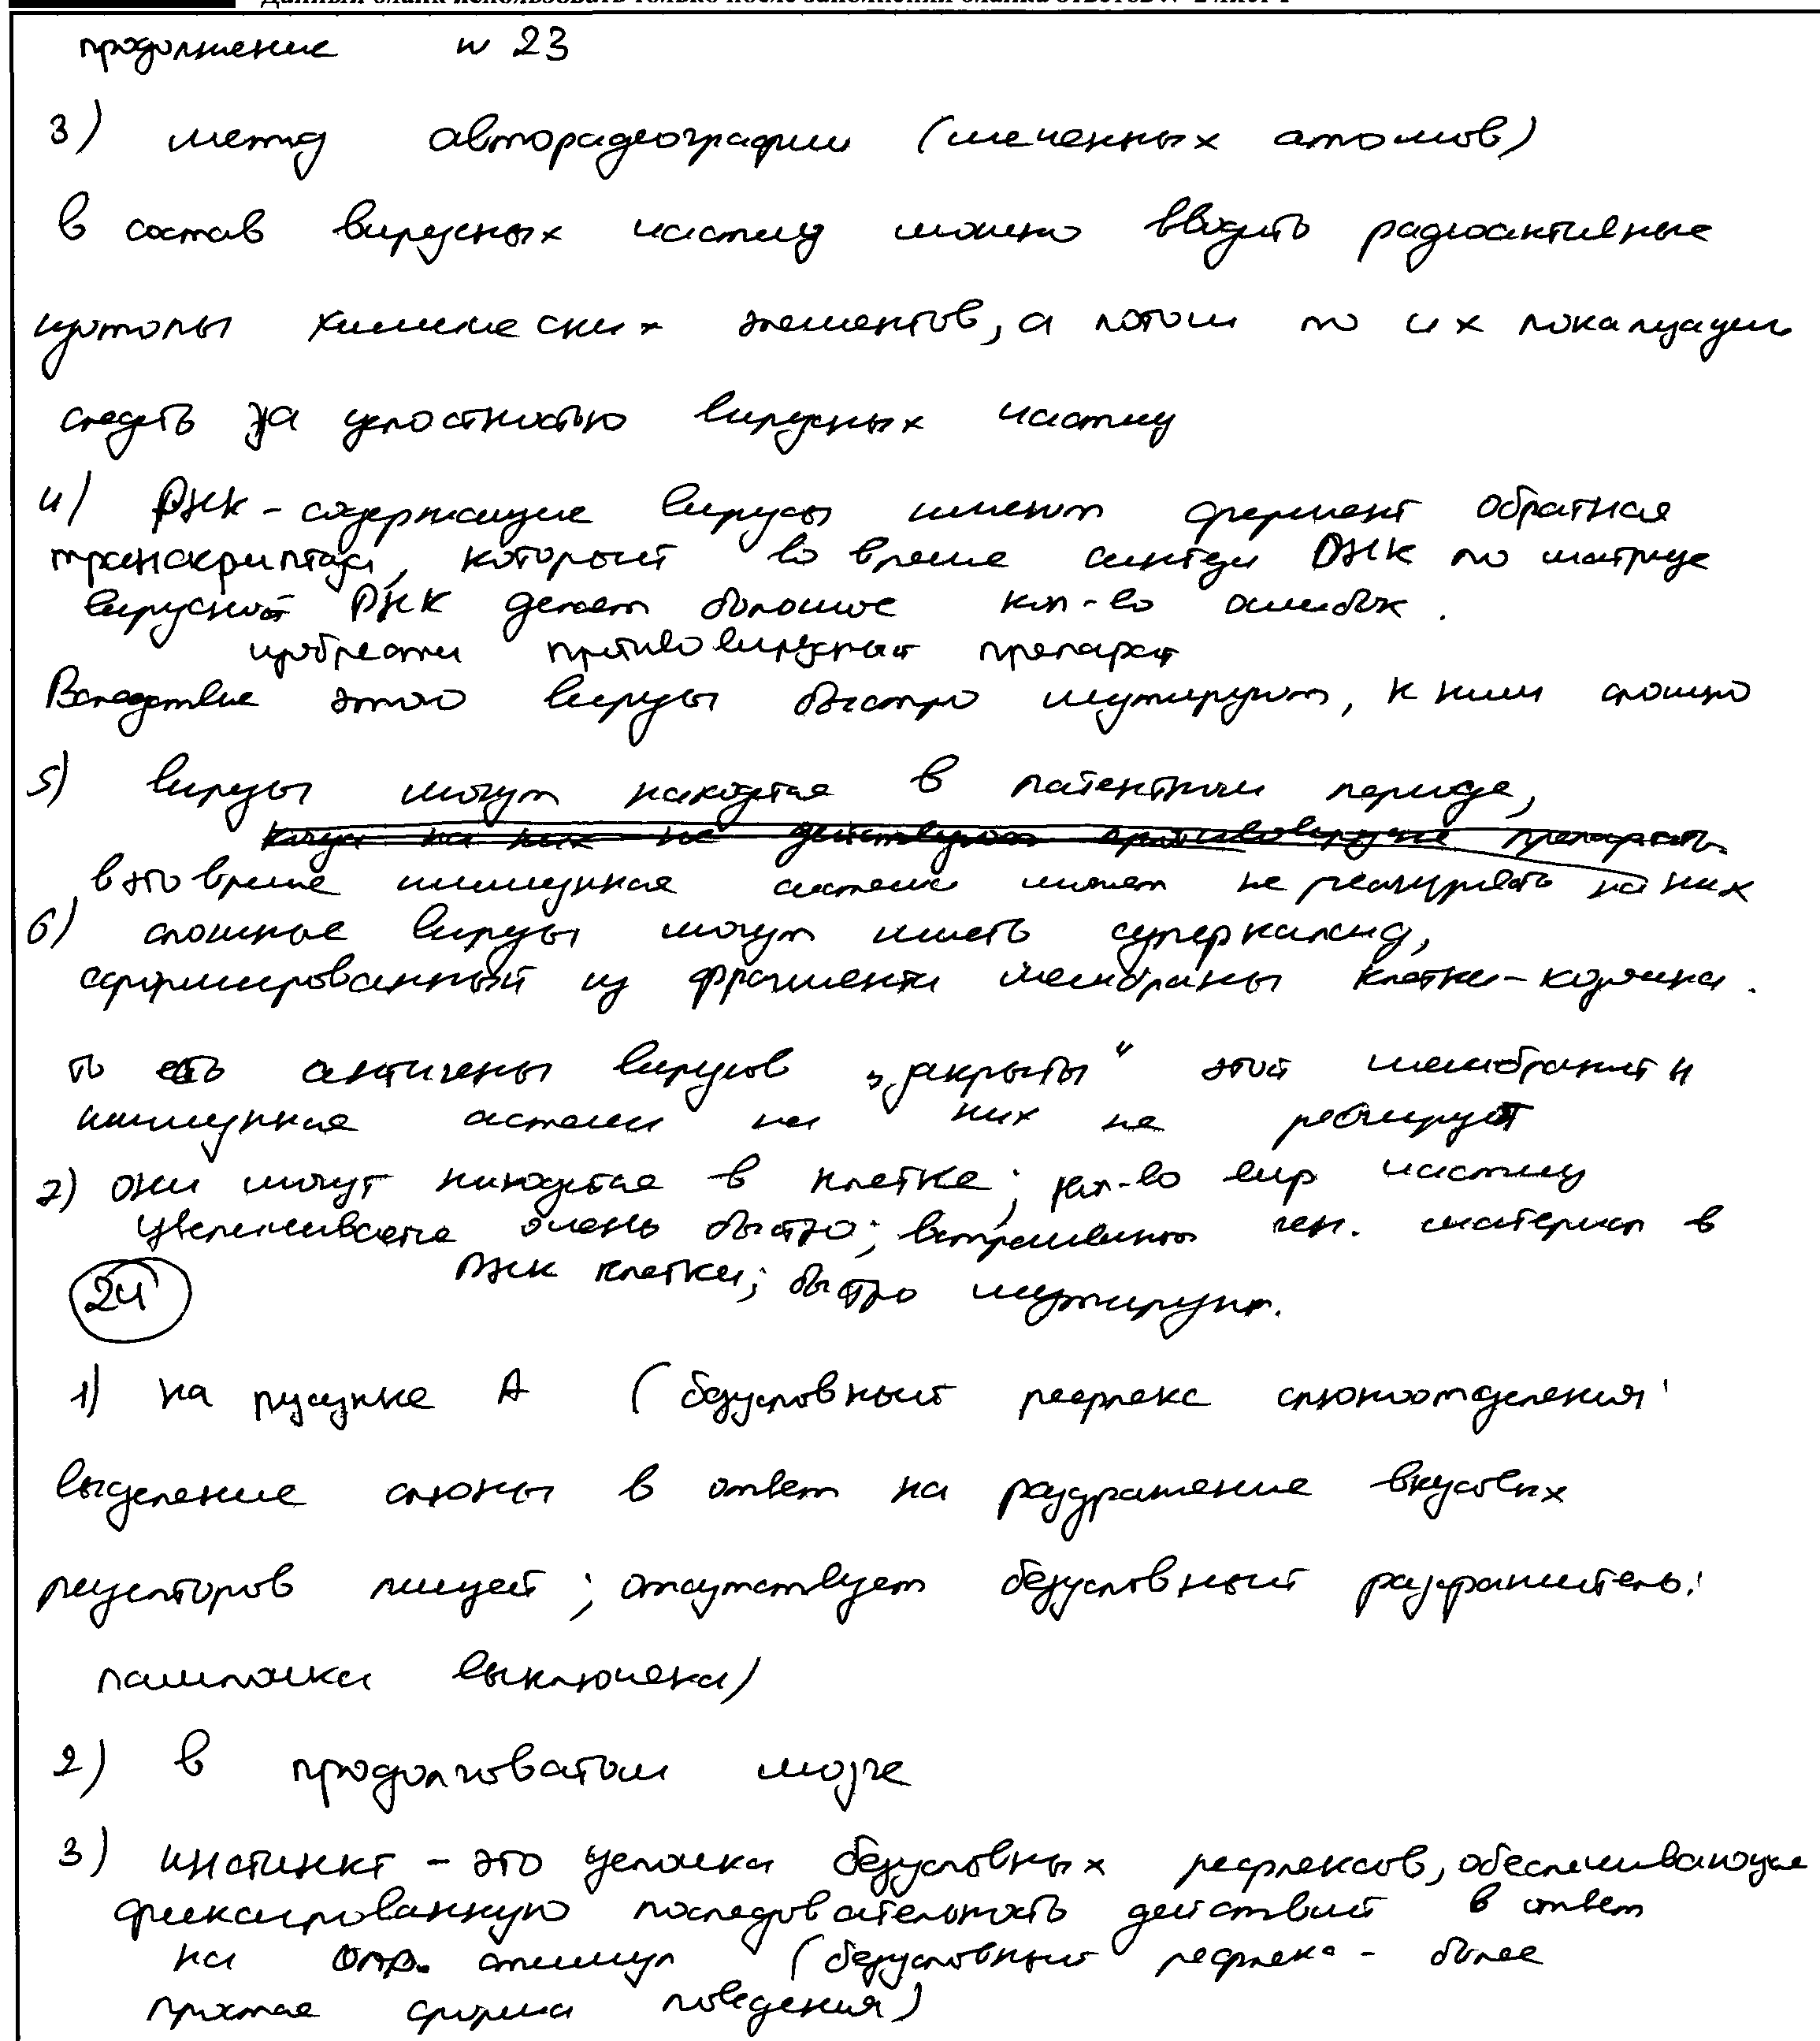 Данный бланк использовать только после заполнения бланка ответов № 2 лист 1
продолжение № 23
3) метод авторадеографии (меченных атомов)
в состав вирусных частиц можно вводить радиоактивные
изотопы химических элементов, а потом по их локализации
следить за целостностью вирусных частиц
4) РНК - содержащие вирусы имеют фермент обратная
транскриптаза, который во время синтеза ДНК по матрице
вирусной РНК делает большое кол-во ошибок.
изобрести противовирусный препарат
Вследствие этого вирусы быстро мутируют, к ним сложно
5) вирусы могут находится в латентном периоде,
когда на них не действуют противовирусные препараты
в это время иммунная система может не реагировать на них
6) сложные вирусы могут иметь суперкапсид,
сформированный из фрагмента мембраны клетки-хозяина.
то есть антигены вирусов „закрыты" этой мембраной и
иммунная система на них не реагирует
7) они могут находится в клетке; кол-во вир частиц
увеличивается очень быстро; встраивают ген. материал в
ДНК клетки; быстро мутируют.
24
1) на рисунке А (безусловный рефлекс слюноотделения:
выделение слюны в ответ на раздражение вкусовых
рецепторов пищей; отсутствует безусловный раздражитель:
лампочка выключена)
2) в продолговатом мозге
3) инстинкт - это цепочка безусловных рефлексов, обеспечивающие
фиксированную последовательность действий в ответ
на опр. стимул (безусловный рефлекс - более
простая форма поведения)